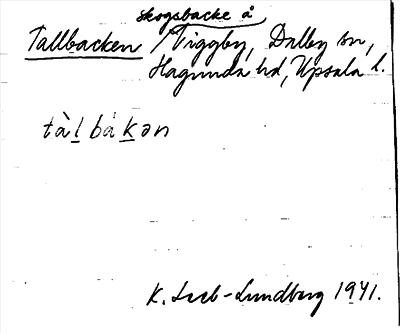 skogsbacke å
Tallbacken / Viggby, Dalby sn,
Hagunda hd, Upsala l.
tàl bákən
K. Lseb-Lundberg 1941.